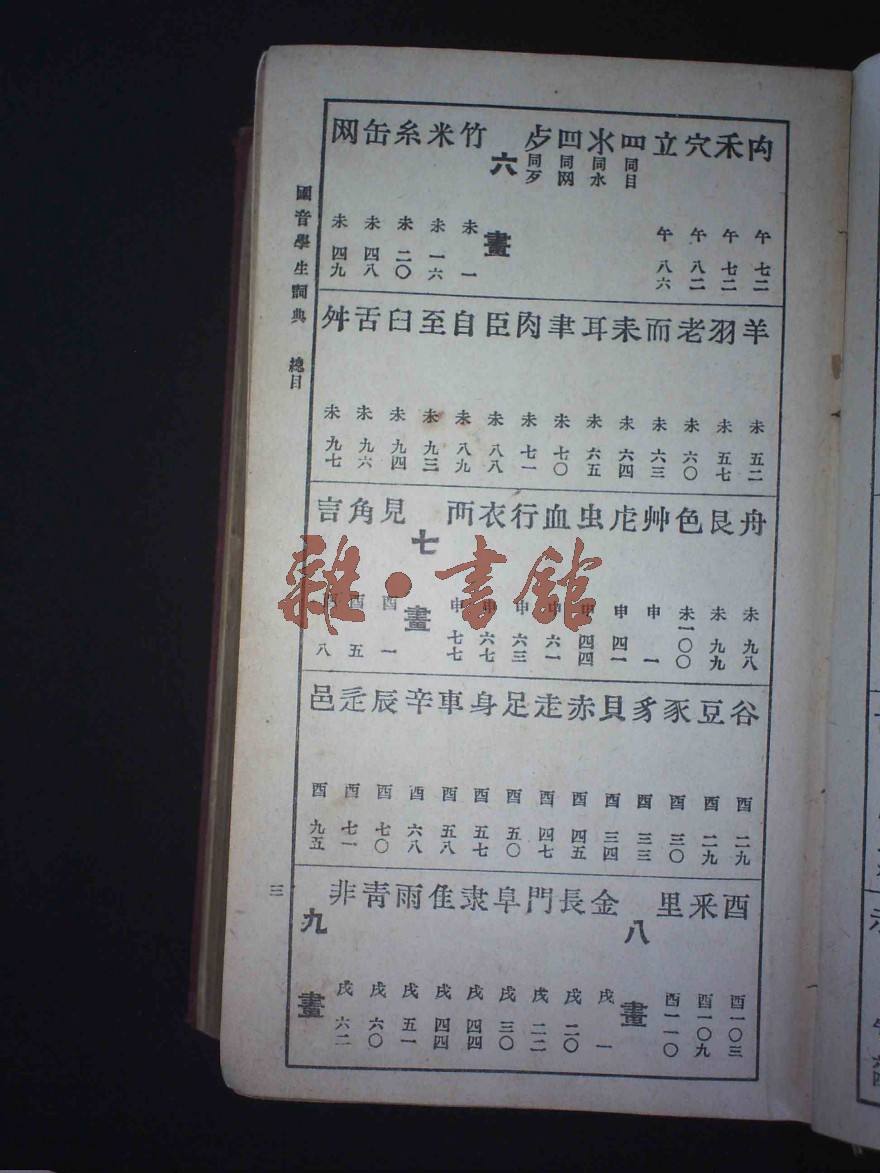 國音學生詞典　總目
三
禸　午　七二
禾　午　七二
穴　午　八二
立　午　八六
罒同目
氺同水
罒同网
歺同歹
六畫
竹　未　一
米　未　一六
糸　未　二〇
缶　未　四八
网　未　四九
羊　未　五二
羽　未　五七
老　未　六〇
而　未　六三
耒　未　六四
耳　未　六五
聿　未　七〇
肉　未　七一
臣　未　八八
自　未　八九
至　未　九三
臼　未　九四
舌　未　九六
舛　未　九七
舟　未　九八
艮　未　九九
色　未一〇〇
艸　申　一
虍　申　四一
虫　申　四四
血　申　六一
行　申　六三
衣　申　六七
襾　申　七七
七畫
見　酉　一
角　酉　五
言　酉　八
谷　酉　二九
豆　酉　二九
豕　酉　三〇
豸　酉　三三
貝　酉　三四
赤　酉　四五
走　酉　四七
足　酉　五〇
身　酉　五七
車　酉　五八
辛　酉　六八
辰　酉　七〇
辵　酉　七一
邑　酉　九五
酉　酉一〇三
釆　酉一〇九
里　酉一一〇
八畫
金　戌　一
長　戌　二〇
門　戌　二二
阜　戌　三〇
隶　戌　四四
隹　戌　四四
雨　戌　五一
靑　戌　六〇
非　戌　六二
九畫
雜·書館